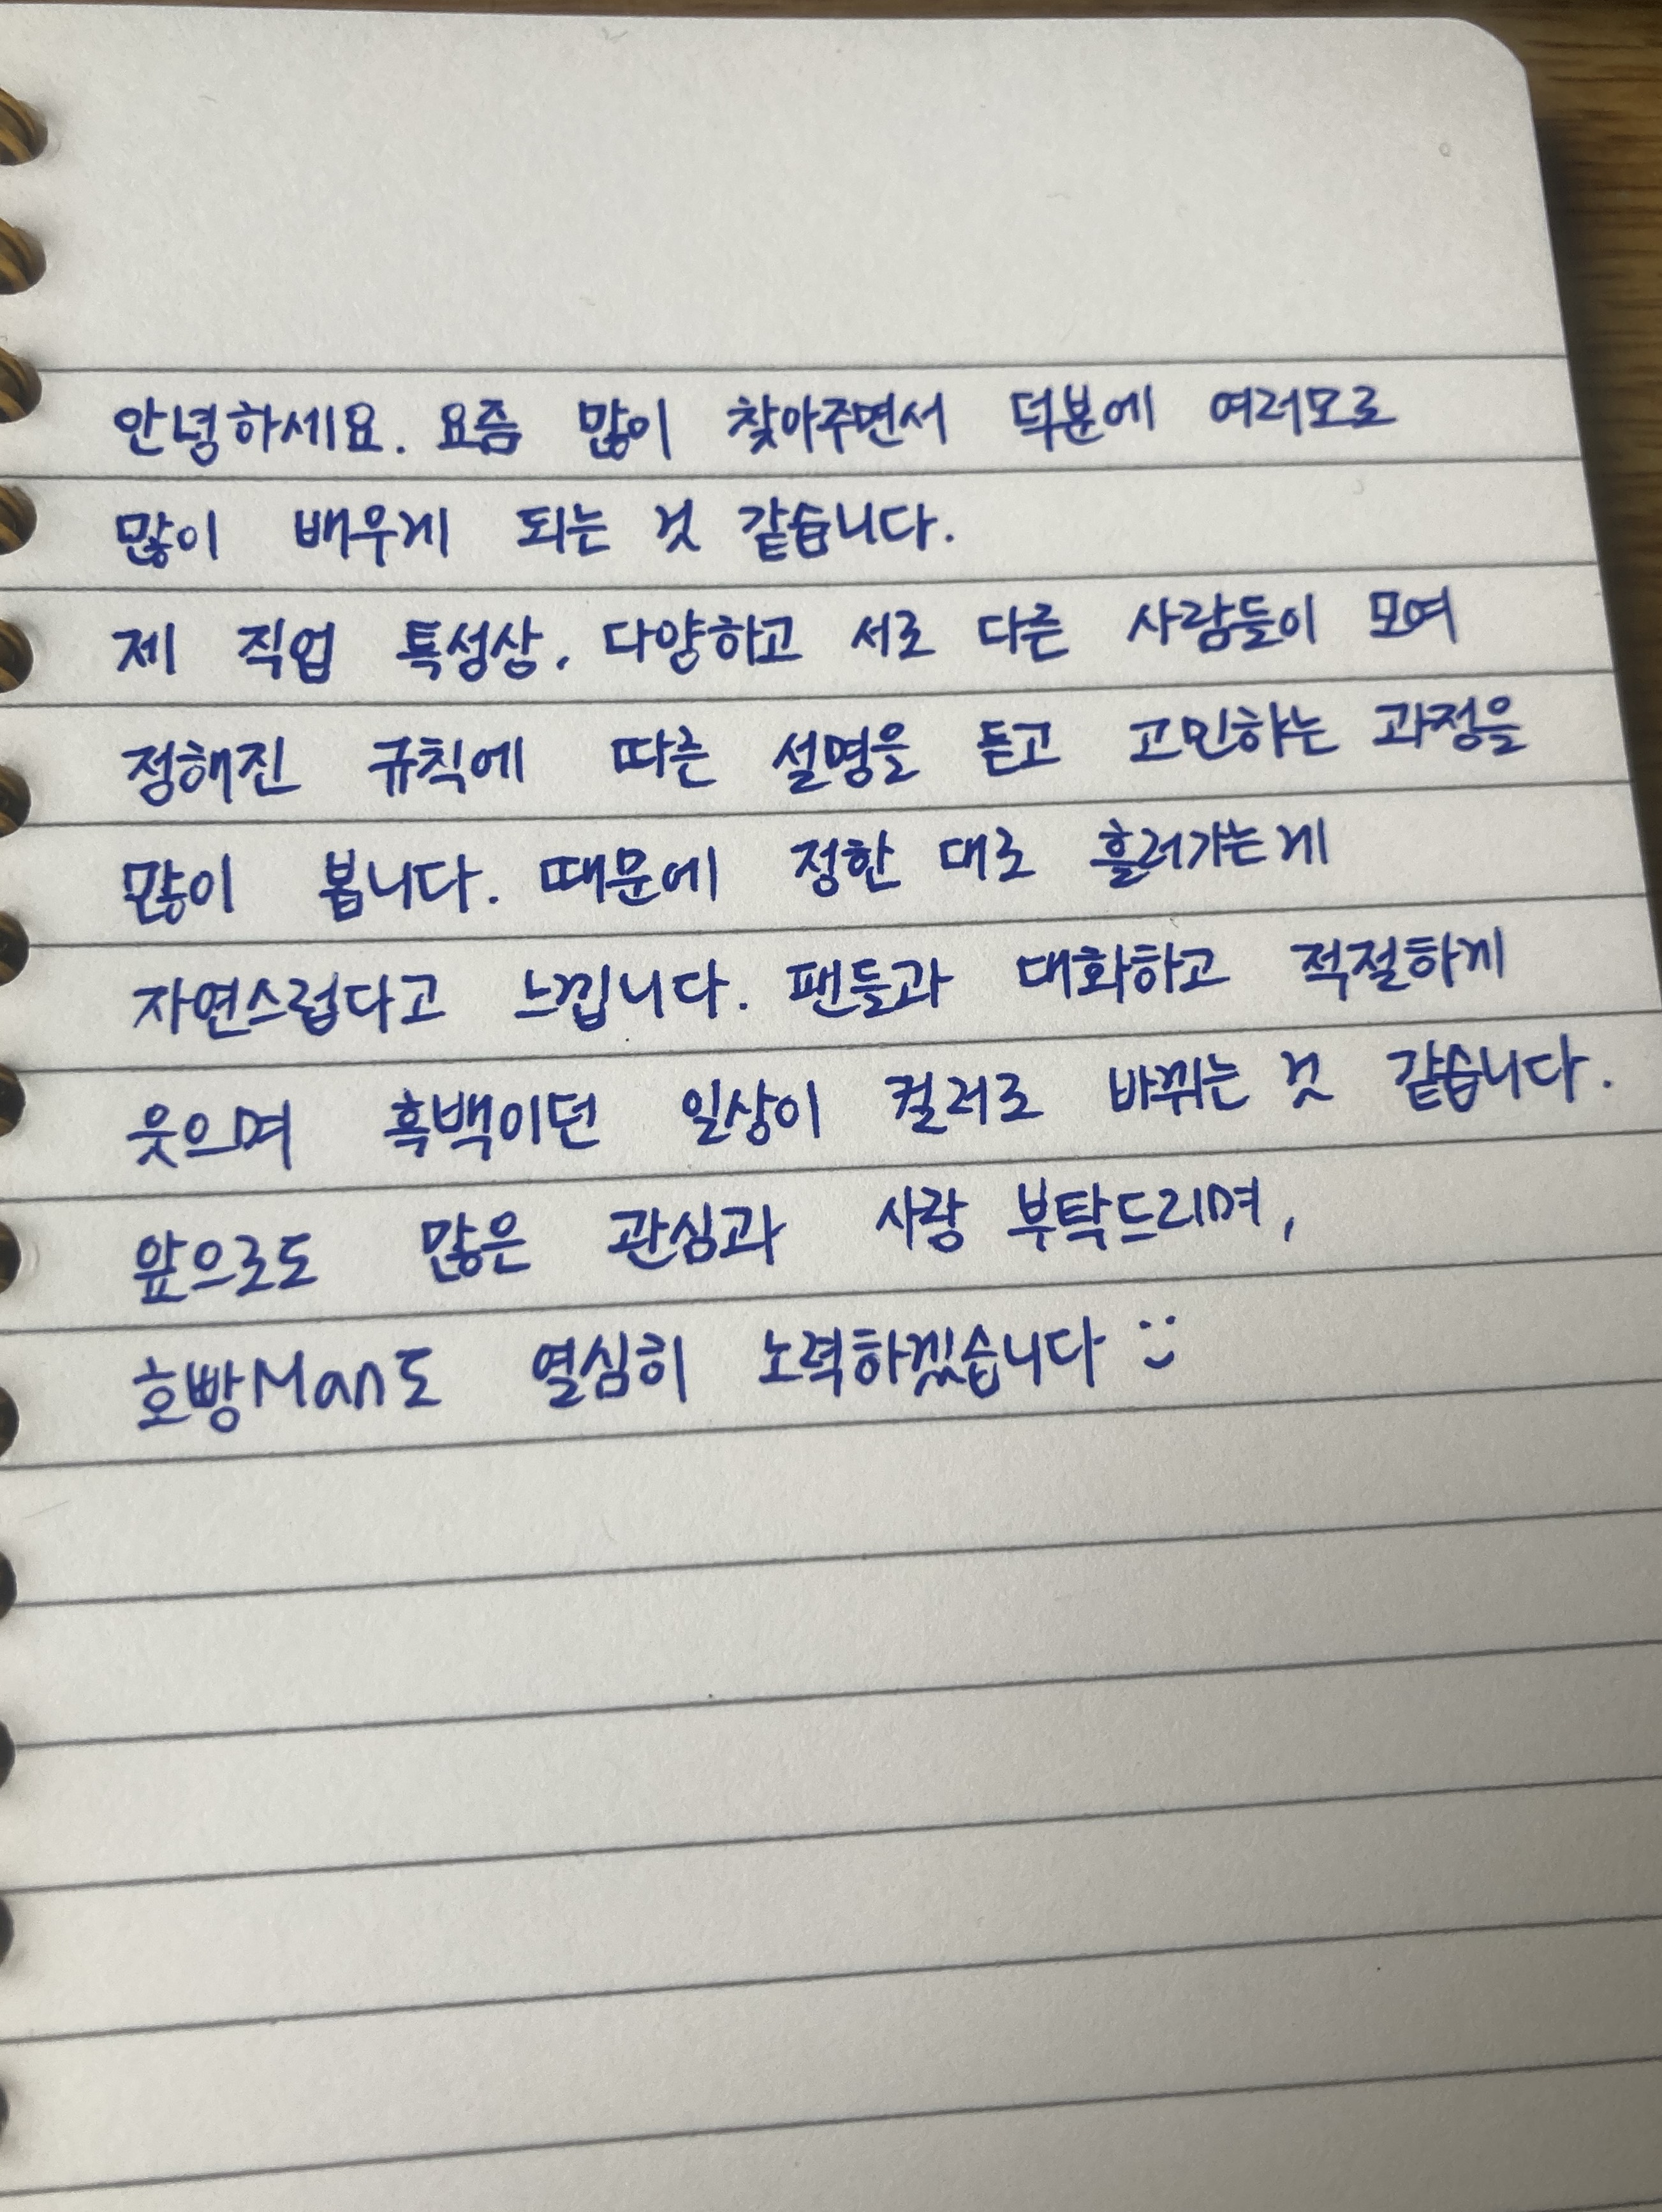 안녕하세요. 요즘 많이 찾아주면서 덕분에 여러모로
많이 배우게 되는 것 같습니다.
제 직업 특성상, 다양하고 서로 다른 사람들이 모여
정해진 규칙에 따른 설명을 듣고 고민하는 과정을
많이 봅니다. 때문에 정한 대로 흘러가는게
자연스럽다고 느낍니다. 팬들과 대화하고 적절하게
웃으며 흑백이던 일상이 컬러로 바뀌는 것 같습니다.
앞으로도 많은 관심과 사랑 부탁드리며,
호빵Man도 열심히 노력하겠습니다 :)